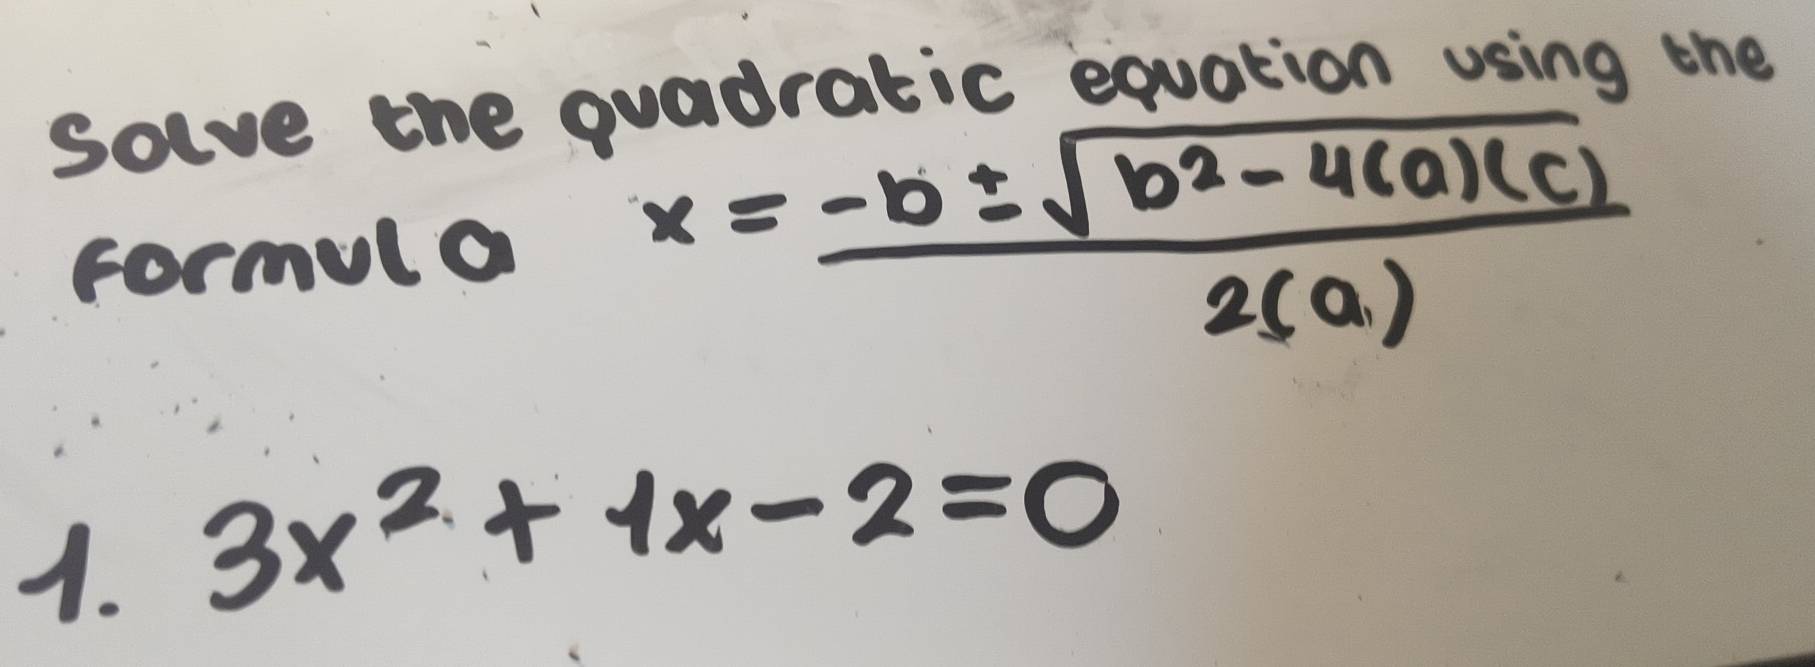 Solve the quadratic equation using the
formula x = -b ± √b² - 4(a)(c) / 2(a)
1. 3x² + 1x - 2 = 0